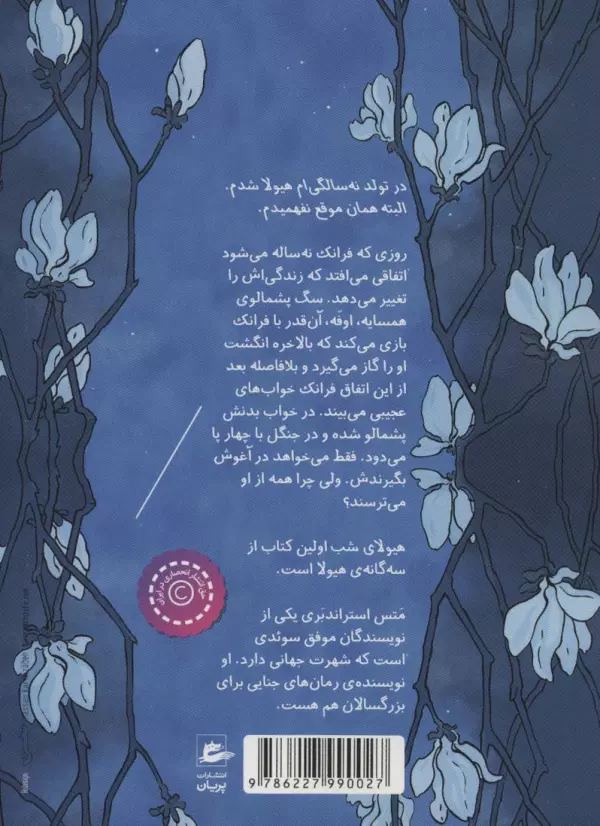 در تولد نه‌سالگی‌ام هیولا شدم.
البته همان موقع نفهمیدم.
روزی که فرانک نه‌ساله می‌شود
اتفاقی می‌افتد که زندگی‌اش را
تغییر می‌دهد. سگ پشمالوی
همسایه، اوفّه، آن‌قدر با فرانک
بازی می‌کند که بالاخره انگشت
او را گاز می‌گیرد و بلافاصله بعد
از این اتفاق فرانک خواب‌های
عجیبی می‌بیند. در خواب بدنش
پشمالو شده و در جنگل با چهار پا
می‌دود. فقط می‌خواهد در آغوش
بگیرندش. ولی چرا همه از او
می‌ترسند؟
هیولای شب اولین کتاب از
سه‌گانه‌ی هیولا است.
مَتس استراندبَری یکی از
نویسندگان موفق سوئدی
است که شهرت جهانی دارد. او
نویسنده‌ی رمان‌های جنایی برای
بزرگسالان هم هست.
حق انتشار انحصاری در ایران
©
انتشارات
پریان
9 786227 990027